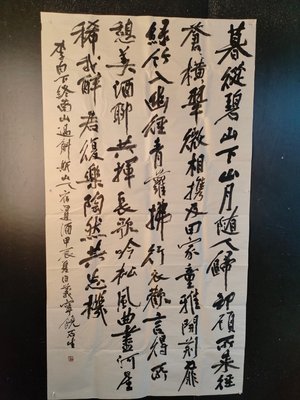 暮從碧山下山月隨人歸卻顧所來徑
蒼橫翠微相攜及田家童稚開荊扉
綠竹入幽徑青蘿拂行衣歡言得所
憩美酒聊共揮長歌吟松風曲盡河星
稀我醉君復樂陶然共忘機
李白下終南山過斛斯山人宿置酒甲辰夏日